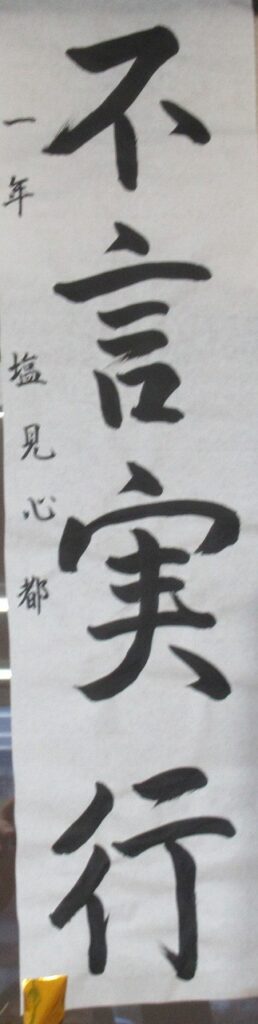 不言実行
一年 塩見心都